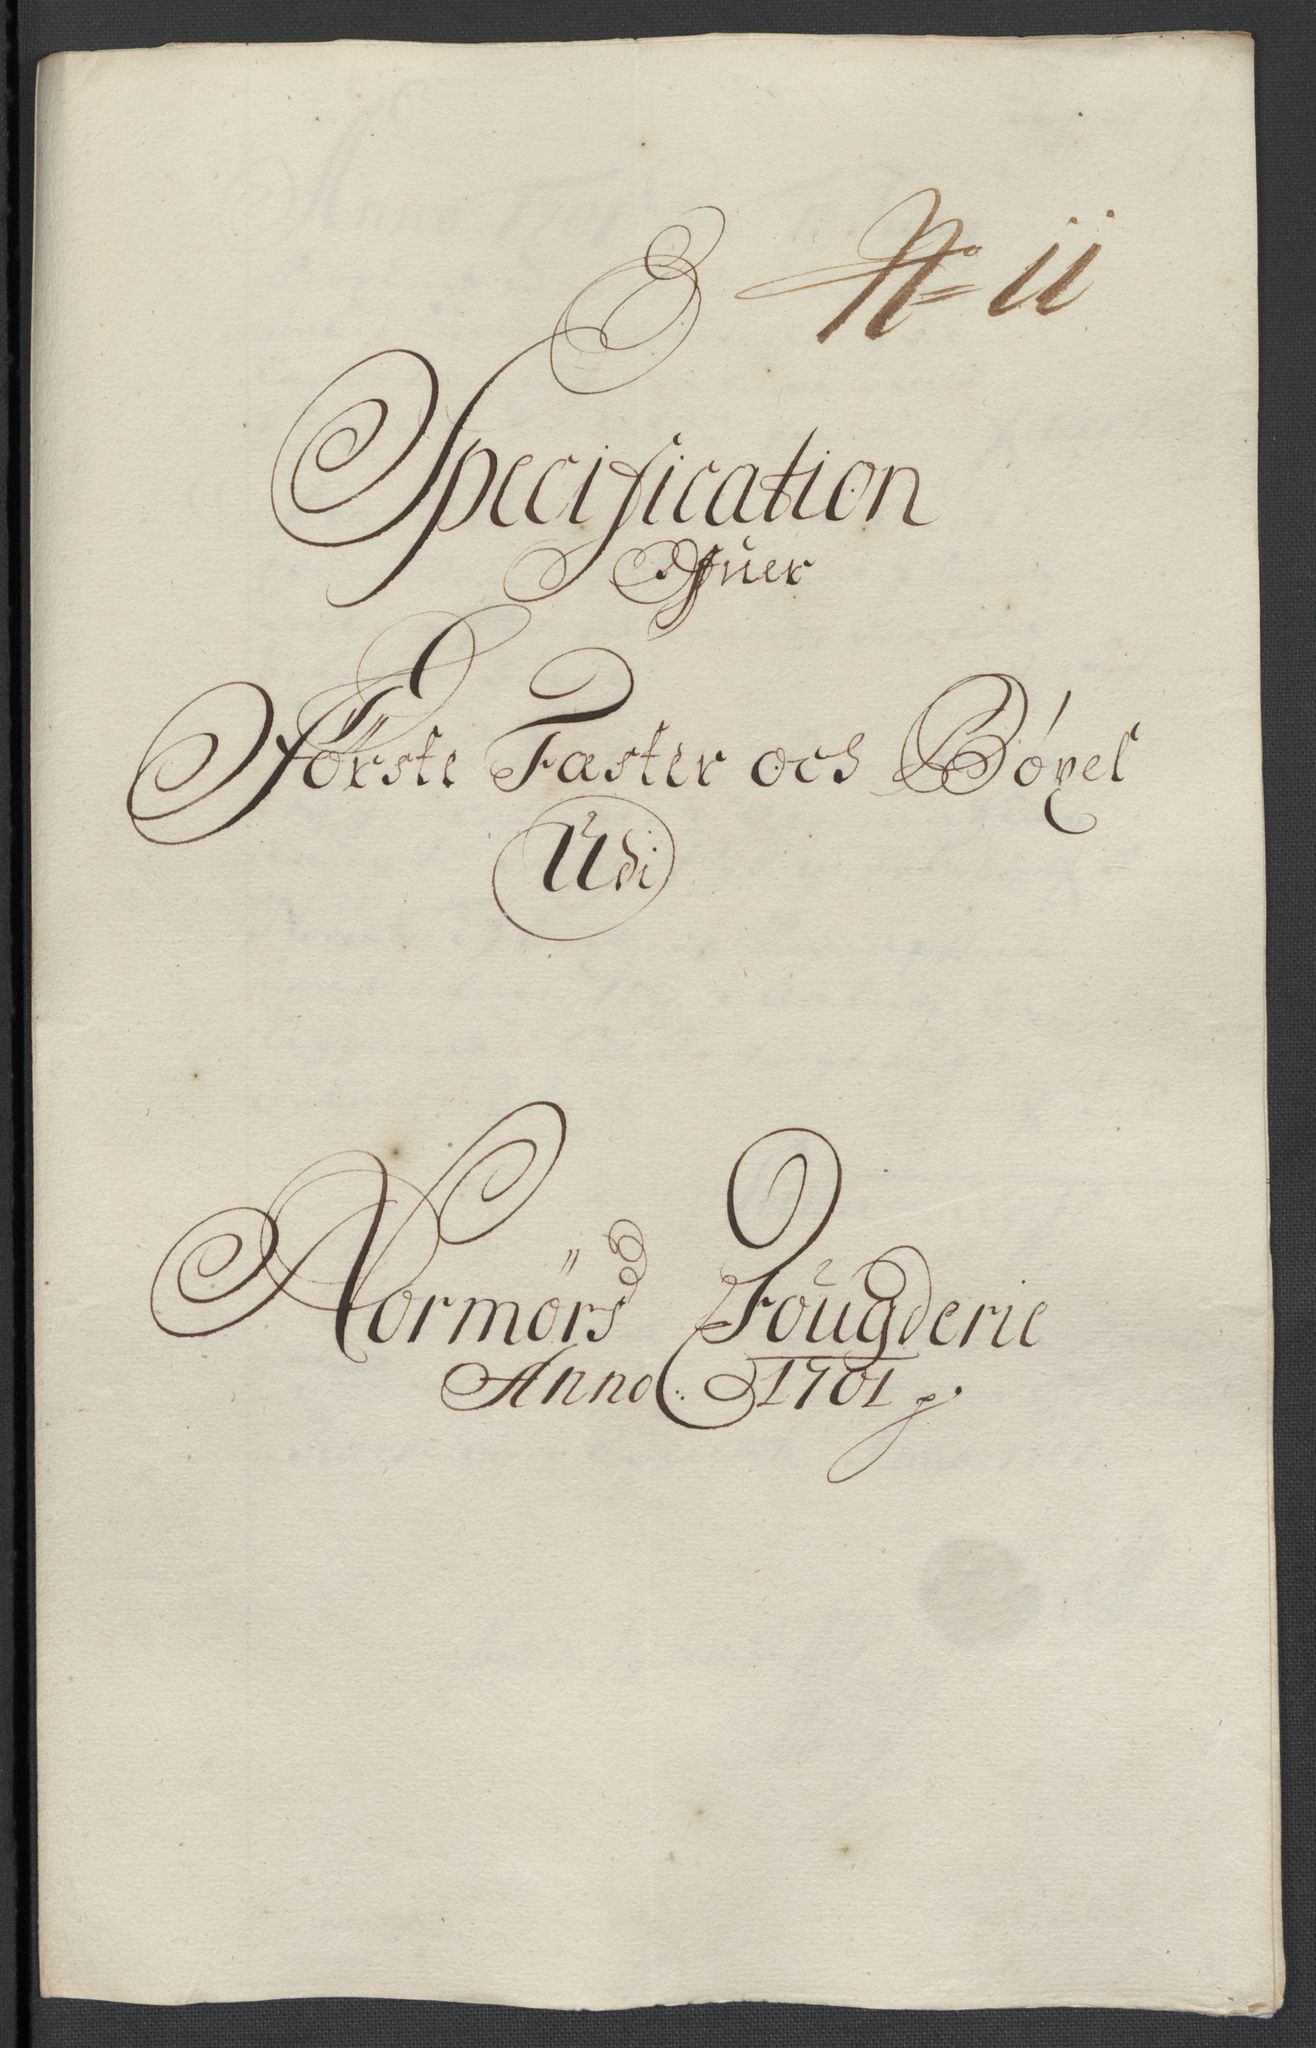 No 11
Specification
Ofuer
Förste Fæster och Böxel
Udi
Normörs Fougderie
Anno 1701